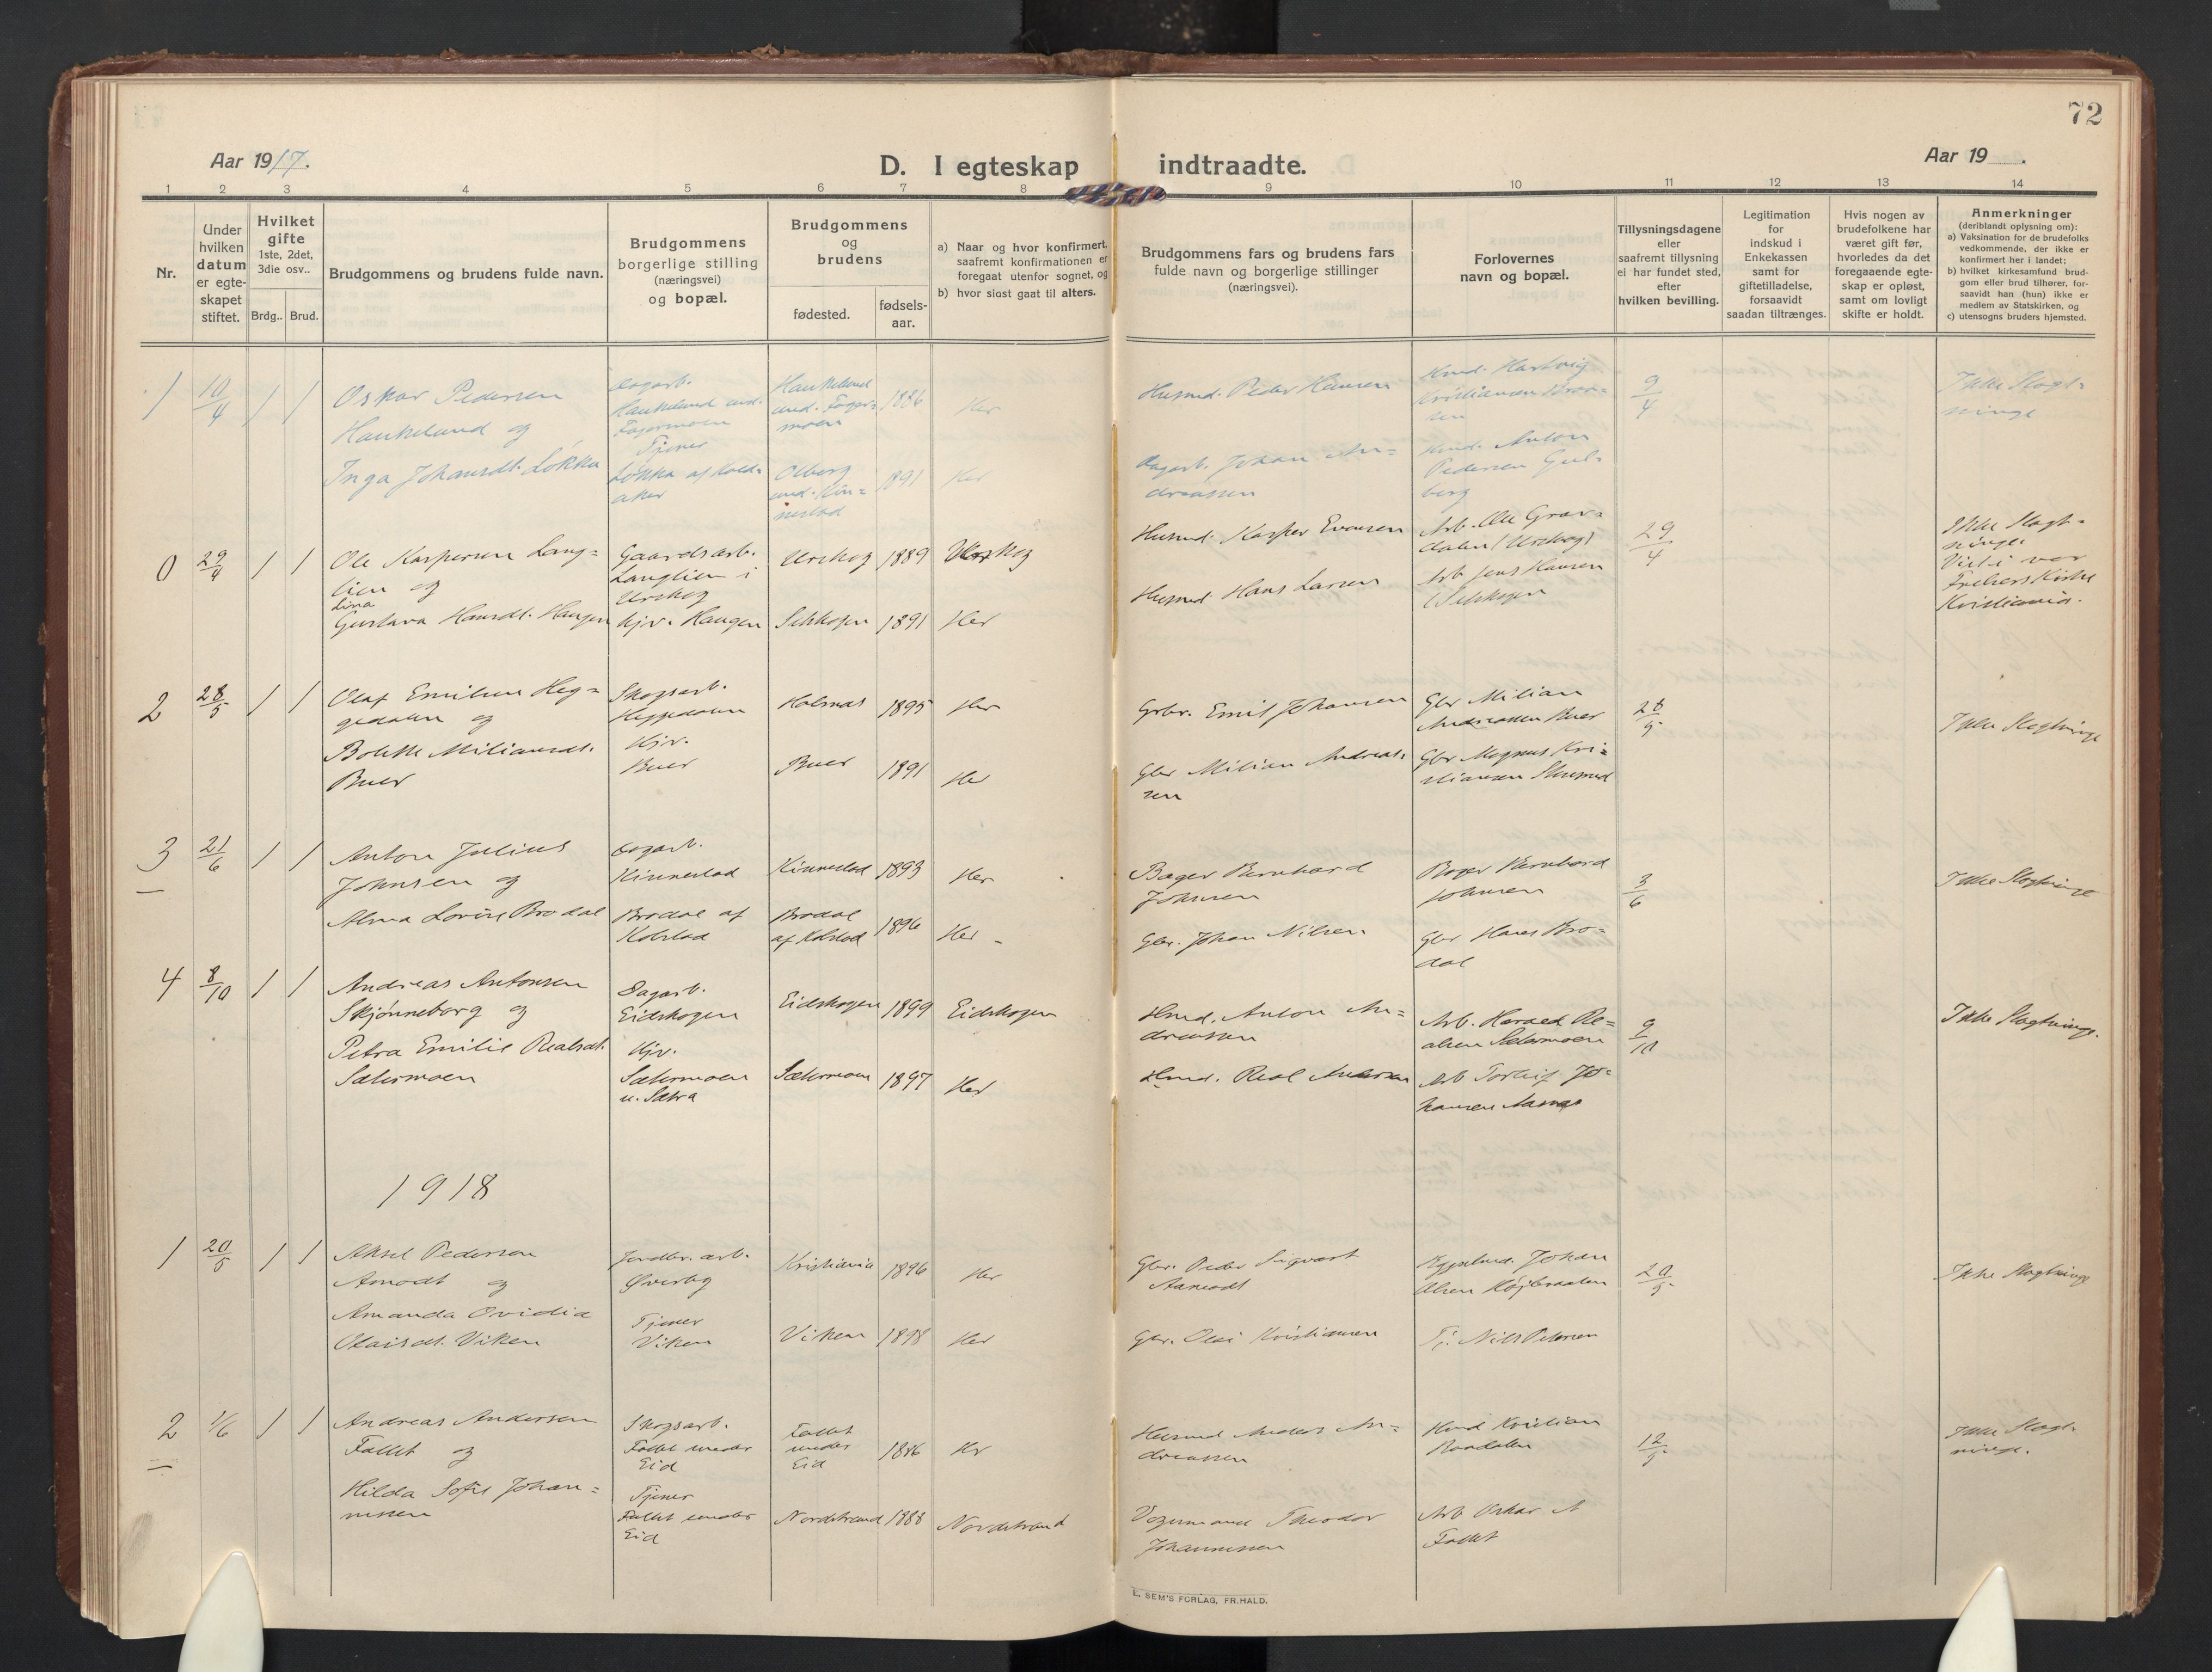 72
Aar 1917.
D. I egteskap indtraadte.
Aar 19 .
1 2 3 4 5 6 7 8 9 10 11 12 13 14
Nr.
Under
hvilken
datum
er egte-
skapet
stiftet.
Hvilket
gifte
1ste, 2det,
3die osv..
Brdg.. Brud.
Brudgommens og brudens fulde navn.
Brudgommens
borgerlige stilling
(næringsvei)
og bopæl.
Brudgommens
og
brudens
fødested.
fødsels-
aar.
a) Naar og hvor konfirmert,
saafremt konfirmationen er
foregaat utenfor sognet, og
b) hvor sidst gaat til alters.
Brudgommens fars og brudens fars
fulde navn og borgerlige stillinger
(næringsvei).
Forlovernes
navn og bopæl.
Tillysningsdagene
eller
saafremt tillysning
ei har fundet sted,
efter
hvilken bevilling.
Legitimation
for
indskud i
Enkekassen
samt for
giftetilladelse,
forsaavidt
saadan tiltrænges.
Hvis nogen av
brudefolkene har
været gift før,
hvorledes da det
foregaaende egte-
skap er opløst,
samt om lovligt
skifte er holdt.
Anmerkninger
(deriblandt oplysning om):
a) Vaksination for de brudefolks
vedkommende, der ikke er
konfirmert her i landet;
b) hvilket kirkesamfund brud-
gom eller brud tilhører, for-
saavidt han (hun) ikke er
medlem av Statskirken, og
c) utensogns bruders hjemsted.
1 10/4 1 1
Oskar Pedersen
Haukelund og
Inga Johansdt. Løkka
Dagarb.
Haukelund und.
Fagermoen
Tjener
Løkka af Kold-
aker
Haukelund
und. Fager-
moen
1886
Her
Olberg
und. Kin-
nestad
1891
Her
Husmd. Peder Hansen
Dagarb. Johan An-
dreassen
Hmd. Hartvig
Kristiansen
Hmd. Anton
Pedersen Gul-
berg
9/4
Ikke Slegt-
ninge
0 29/4 1 1
Ole Kaspersen Lang-
lien og
Lina
Gustava Hansdt. Haugen
Gaardsarb.
Langlien i
Urskog
Hjv. Haugen
Urskog 1889 Urskog
Setskogen 1891 Her
Husmd. Kasper Evensen
Husmd. Hans Larsen
Arb. Ole Grav-
dalen (Urskog)
Arb Jens Hansen
(Setskogen
29/4
Ikke Slegt-
ninge.
Viet i vor
Frelsers Kirke
Kristiania.
2 28/5 1 1
Olaf Emilsen Heg-
gedalen og
Bolette Miliansdt.
Buer
Skogsarb.
Heggedalen
Hjv.
Buer
Holmas 1895 Her
Buer 1891 Her
Grbr. Emil Johansen
Gbr Milian Andreas-
sen
Gbr Milian
Andreassen Buer
Gbr Magnus Kri-
stiansen
28/5
Ikke Slegtninge
3 21/6 1 1
Anton Julius
Johnsen og
Alma Lovise Brodal
Dagarb.
Kinnestad
Brodal af
Kolstad
Kinnestad 1893 Her
Brodal
af Kolstad
1896 Her
Bager Bernhard
Johnsen
Gbr. Johan Nilsen
Bager Bernhard
Johnsen
Gbr Hans Bro-
dal
3/6
Ikke Slegtninge
4 8/10 1 1
Andreas Antonsen
Skjønneborg og
Petra Emilie Realsdt.
Sætermoen
Dagarb.
Eidskogen
Hjv.
Sætermoen
u. Sætra
Eidskogen 1899 Eidskogen
Sætermoen 1897 Her
Hmd. Anton An-
dreassen
Hmd. Real Andersen
Arb. Harald Re-
alsen Sætermoen
Arb Torleif Jo-
hansen
9/10
Ikke Slegtninge.
1918
1 20/5 1 1
Aksel Pedersen
Amodt og
Amanda Ovidia
Olaisdt. Viken
Jordbr. arb.
Øverby
Tjener
Viken
Kristiania 1896 Her
Viken 1898 Her
Gbr. Peder Sigvart
Aamodt
Gbr. Olai Kristiansen
Johan
Olsen
Tj. Nils Petersen
20/5
Ikke Slegtninge
2 1/6 1 1
Andreas Andersen
Fallet og
Hilda Sofie Johan-
nessen
Skogsarb.
Fallet under
Eid
Tjener
Fallet under
Eid
Fallet
under
Eid
1886 Hr
Nordstrand 1888 Nordstrand
Husmd Anders An-
dreassen
Vognmand Theodor
Johannessen
Hmd Kristian
Raadalen
Arb Oskar A
Fallet
12/5
Ikke Slegt-
ninge.
E. SEM'S FORLAG, FR.HALD.